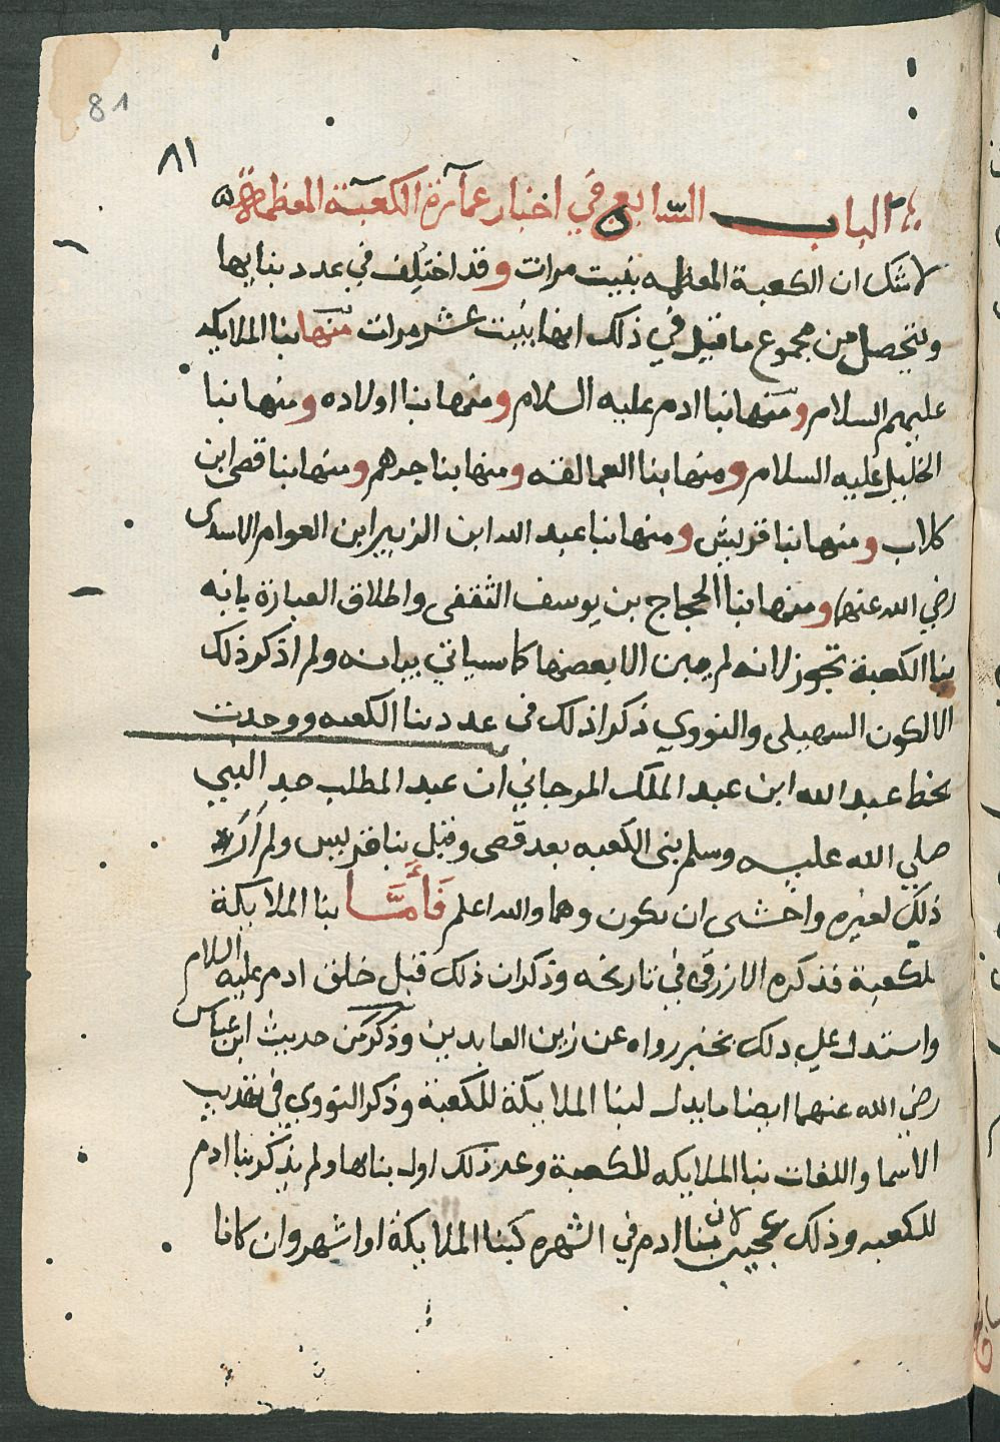 81
٨١
الباب السابع في اخبار عمارة الكعبة المعظمة
لاشك ان الكعبة المعظمه بنيت مرات وقد اختلف في عدد بنايها
ويتحصل من مجموع ما قيل في ذلك انها بنيت عشر مرات منها بنا الملايكه
عليهم السلام ومنها بنا ادم عليه السلام ومنها بنا اولاده ومنها بنا
الخليل عليه السلام ومنها بنا العمالقه ومنها بنا جرهم ومنها بنا قصى ابن
كلاب ومنها بنا قريش ومنها بنا عبد الله ابن الزبير ابن العوام الاسدى
رضي الله عنهما ومنها بنا الحجاج بن يوسف الثقفى واطلاق العبارة بانه
بنا الكعبة تجوز لانه لم يبن الا بعضها كما سياتي بيانه ولم اذكر ذلك
الا لكون السهيلى والنووي ذكرا ذلك فى عدد بنا الكعبه ووجدت
بخط عبد الله ابن عبد الملك المرجاني ان عبد المطلب جد النبي
صلي الله عليه وسلم بنى الكعبه بعد قصى وقبل بنا قريش ولم ار
ذلك لغيره واخشى ان يكون وهما والله اعلم فَأَمَّا بنا الملايكة
للكعبة فذكره الازرقى في تاريخه وذكر ان ذلك قبل خلق ادم عليه السلام
واستدل علي ذلك بخبر رواه عن زين العابدين وذكر من حديث ابن عباس
رضي الله عنهما ايضا ما يدل لبنا الملايكة للكعبة وذكر النووي في تهذيب
الاسما واللغات بنا الملايكه للكعبة وعد ذلك اول بناها ولم يذكر بنا ادم
للكعبه وذلك عجيب لان بنا ادم في الشهره كبنا الملايكة او اشهر وان كانا